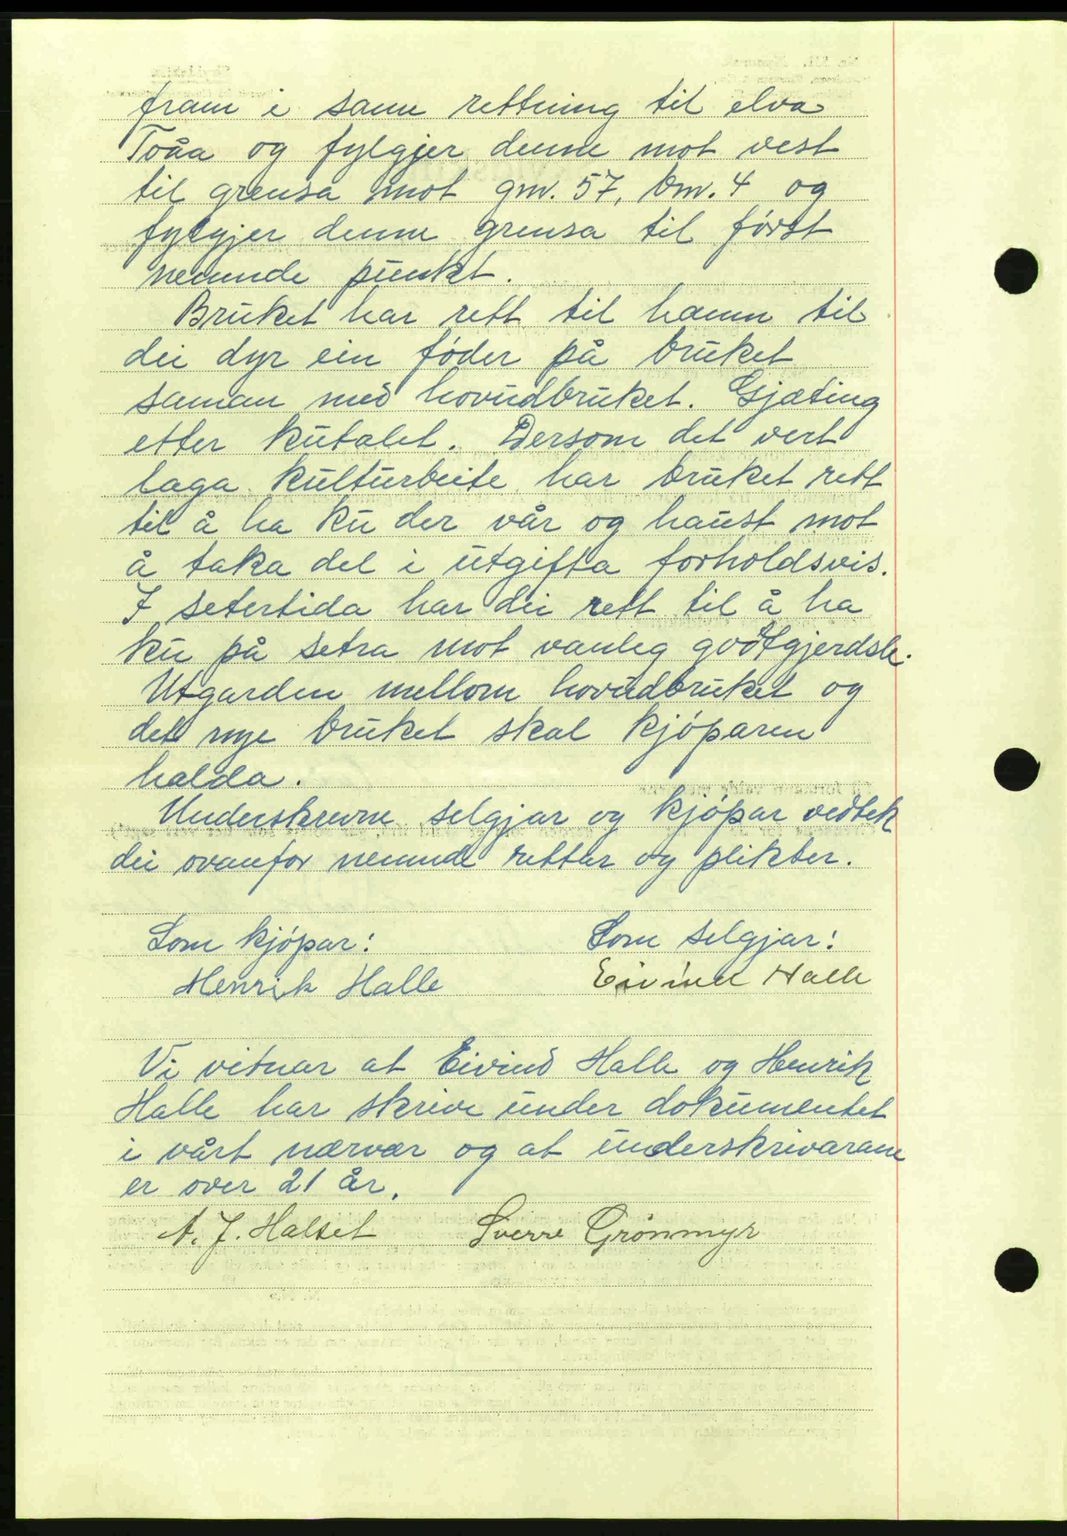 fram i samme rettning til elva
Toåa og fylgjer denne mot vest
til grensa mot gnr. 57, bnr. 4 og
fylgjer denne grensa til först
nemnde punkt.
Bruket har rett til hamn til
dei dyr ein föder på bruket
saman med hovudbruket. Gjæting
etter kutalet. Dersom det vert
laga kulturbeite har bruket rett
til å ha ku der vår og haust mot
å taka del i utgifta forholdsvis.
I setertida har dei rett til å ha
ku på setra mot vanleg godtgjerdsle.
Utgarden mellom hovudbruket og
det nye bruket skal kjöparen
halda.
Underskrevne selgjar og kjöpar vedtek
dei ovanfor nemnde rettar og plikter.
Som kjöpar: Som selgjar:
Henrik Halle Eivind Halle
Vi vitnar at Eivind Halle og Henrik
Halle har skrive under dokumentet
i vårt nærvær og at underskrivarane
er over 21 år.
A. J. Halset Sverre Grönmyr